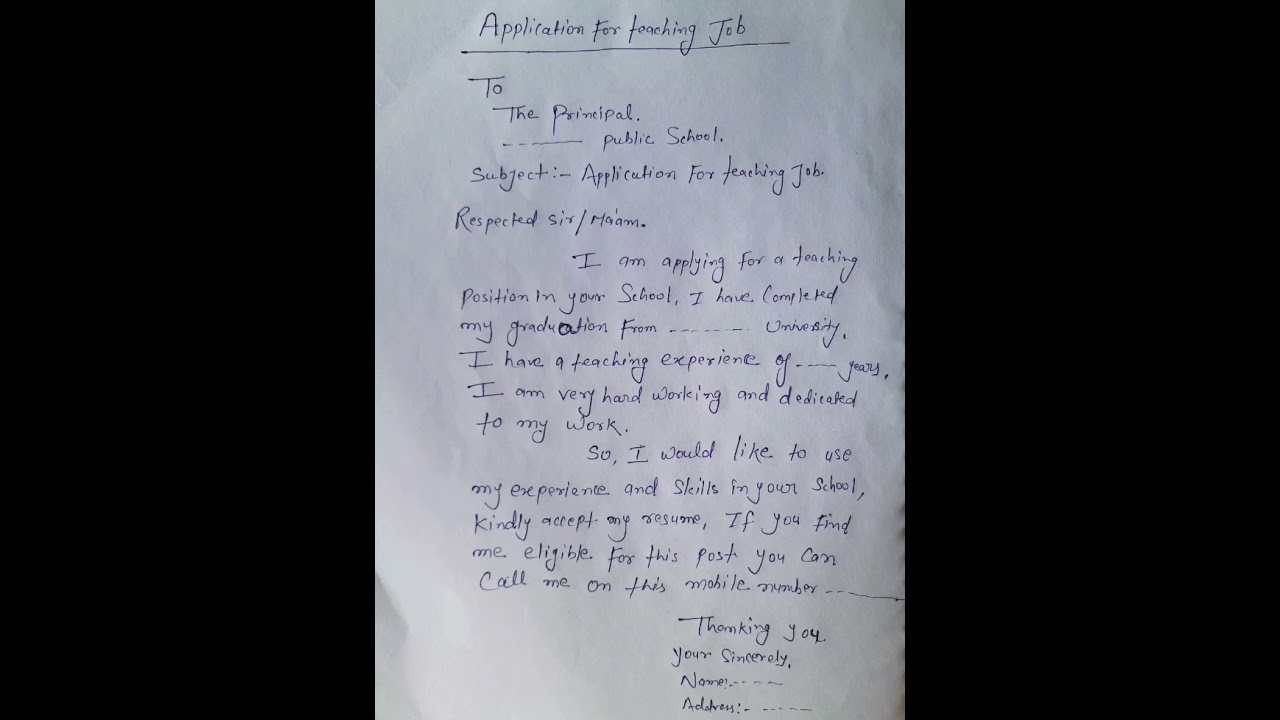 Application For teaching Job
To
The Principal.
------ public School.
Subject:- Application For teaching Job.
Respected sir/Ma'am.
I am applying for a teaching
position in your School, I have Completed
my graduation From -------- University.
I have a teaching experience of ---- years.
I am very hard working and dedicated
to my work.
So, I would like to use
my experience and Skills in your School,
Kindly accept my resume, If you Find
me eligible For this post you Can
Call me on this mobile number ----
Thanking you
your Sincerely,
Name:-----
Address:- -----